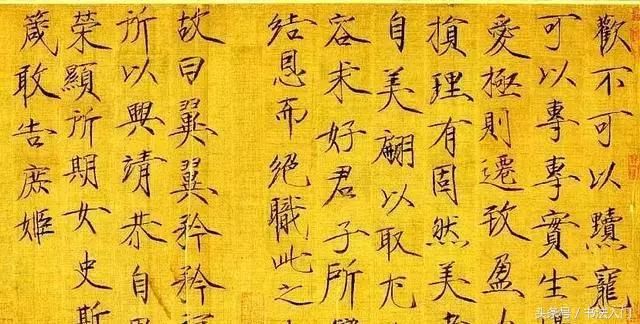 歡不可以黷寵
可以專專實生
愛極則遷致盈
損理有固然美
自美翩以取尤
容求好君子所
結恩而絕職此之
故曰翼翼矜矜
所以興靖恭自
榮顯所期女史斯
箴敢告庶姬
头条号 / 书法入门